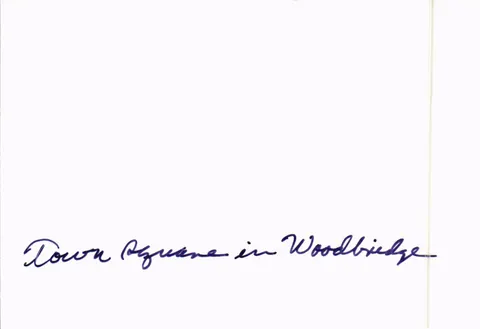 Town square in Woodbridge